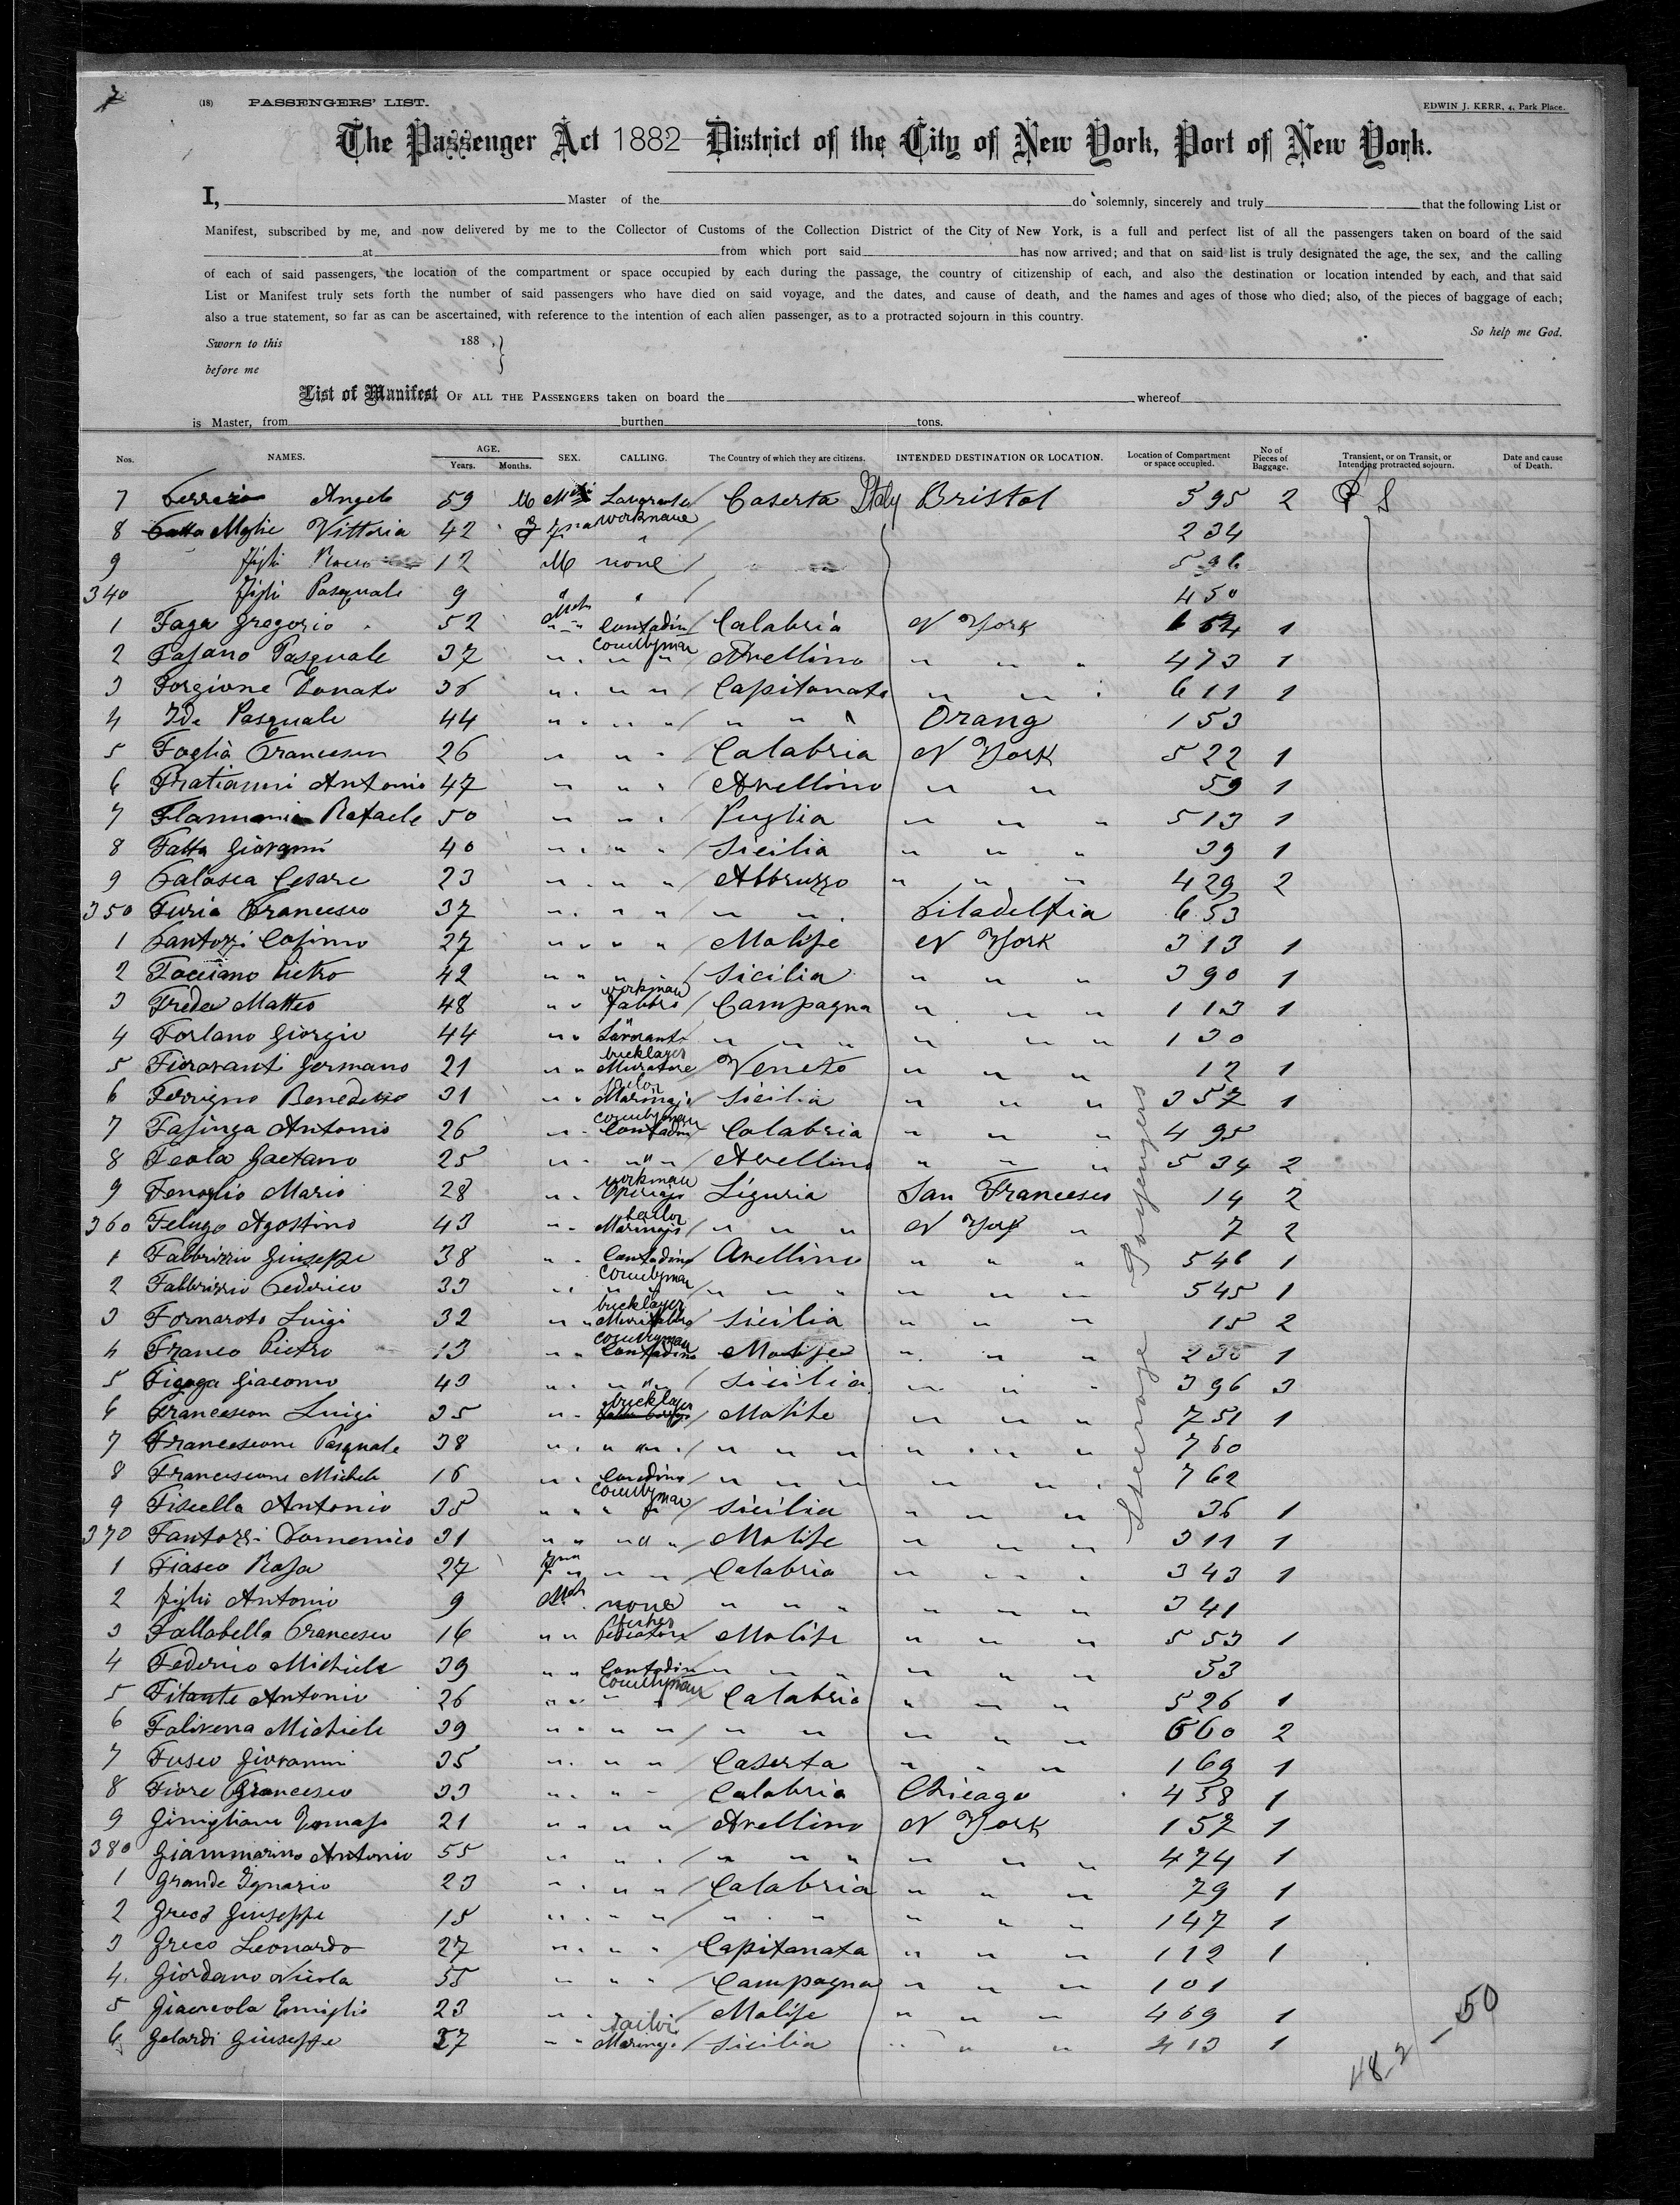 7
(18) PASSENGERS' LIST.
EDWIN J. KERR, 4, Park Place.
The Passenger Act 1882 District of the City of New York, Port of New York.
I, Master of the do solemnly, sincerely and truly that the following List or
Manifest, subscribed by me, and now delivered by me to the Collector of Customs of the Collection District of the City of New York, is a full and perfect list of all the passengers taken on board of the said
at from which port said has now arrived; and that on said list is truly designated the age, the sex, and the calling
of each of said passengers, the location of the compartment or space occupied by each during the passage, the country of citizenship of each, and also the destination or location intended by each, and that said
List or Manifest truly sets forth the number of said passengers who have died on said voyage, and the dates, and cause of death, and the names and ages of those who died; also, of the pieces of baggage of each;
also a true statement, so far as can be ascertained, with reference to the intention of each alien passenger, as to a protracted sojourn in this country.
So help me God.
Sworn to this 188 , }
before me
List of Manifest OF ALL THE PASSENGERS taken on board the whereof
is Master, from burthen tons.
Nos. NAMES. AGE. Years. Months. SEX. CALLING. The Country of which they are citizens. INTENDED DESTINATION OR LOCATION. Location of Compartment or space occupied. No of Pieces of Baggage. Transient, or on Transit, or Intending protracted sojourn. Date and cause of Death.
7 Angelo 59 M Caserta Italy Bristol 595 2 S
8 Moglie Vittoria 42 workman 234
9 figli Rocco 12 M none 596
340 figli Pasquale 9 " 450
1 Faga Gregorio 52 Contadin Calabria N York 654 1
countryman
2 Fasano Pasquale 37 " " " Avellino " " " 473 1
3 Forgione Donato 36 " " " Capitanata " " " 611 1
4 Ide Pasquale 44 " " " " " " Orang 153
5 Foglia Francesco 26 " " " Calabria N York 522 1
6 Fratianni Antonio 47 " " " Avellino " " 59 1
7 Rafaele 50 " " " Puglia " " " 513 1
8 Fatta Giovanni 40 " " " Sicilia " " " 39 1
9 Falasca Cesare 23 " " " Abbruzzo " " " 429 2
350 Furia Francesco 37 " " " " " Filadelfia 653
1 Fantozzi Cosimo 27 " " " Molise N York 313 1
2 Facciano Pietro 42 " " " Sicilia " " " 390 1
workman
3 Freda Matteo 48 " " Fabbro Campagna " " " 113 1
4 Forlano Giorgio 44 " " Lavorante " " " " " " 130
bricklayer
5 Fioravanti Germano 21 " " Muratore Veneto " " " 12 1
sailor
6 Ferrigno Benedetto 31 " " Marinajo Sicilia " " " 357 1
countryman
7 Fasinga Antonio 26 " " Contadino Calabria " " " 495
8 Feola Gaetano 25 " " " Avellino " " " 534 2
workman
9 Fenoglio Mario 28 " " Operajo Liguria San Francesco 14 2
sailor
360 Felugo Agostino 43 " " Marinajo " " " N York " 7 2
1 Fabbrizzio Giuseppe 38 " " Contadino Avellino " " " 546 1
countryman
2 Fabbrizzio Federico 33 " " " " " " " " " 545 1
bricklayer
3 Fornaroto Luigi 32 " " Sicilia " " " 15 2
countryman
4 Franco Pietro 13 " " Contadino Molise " " " 230 1
5 Figaga Giacomo 43 " " " Sicilia " " " 396 3
bricklayer
6 Francescon Luigi 35 " " Molise " " " 751 1
7 Francescone Pasquale 38 " " " " " " " " " 760
8 Francescone Michele 16 " " " " " " " " 762
countryman
9 Fiscella Antonio 38 " " " Sicilia " " " 36 1
370 Fantozzi Domenico 31 " " " Molise " " " 311 1
1 Fiasco Rosa 27 " " Calabria " " " 343 1
2 figli Antonio 9 none " " " " " " 341
3 Fallabella Francesco 16 " " Molise " " " 553 1
4 Federico Michele 39 " " Contadin " " " " " " 53
countryman
5 Filante Antonio 26 " " " Calabria " " " 526 1
6 Falivena Michele 39 " " " " " " " " 560 2
7 Fusco Giovanni 35 " " " Caserta " " " 169 1
8 Fiore Francesco 33 " " " Calabria Chicago 458 1
9 Gimigliano Tomaso 21 " " " Avellino N York 157 1
380 Giammarino Antonio 55 " " " " " " " " " 474 1
1 Grande Ignazio 23 " " " Calabria " " " 79 1
2 Greco Giuseppe 15 " " " " " " " " 147 1
3 Greco Leonardo 27 " " " Capitanata " " " 112 1
4 Giordano Nicola 55 " " " Campagna " " " 101
5 Emiglio 23 " " Molise " " " 469 1
sailor
6 Gelardi Giuseppe 37 " " Marinajo Sicilia " " " 413 1
Steerage Passengers
48.2 - 50